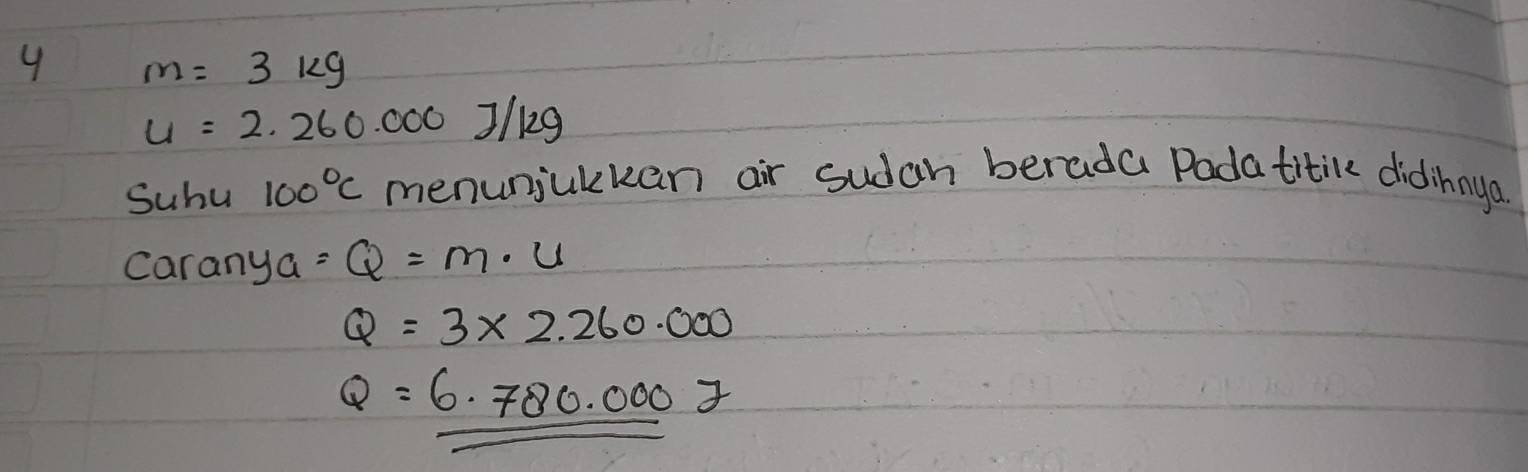 4 m = 3 kg
u = 2.260.000 J/kg
Suhu 100°C menunjukkan air sudah berada Pada titik didihnya.
Caranya = Q = m . u
Q = 3 x 2.260.000
Q = 6.780.000 J